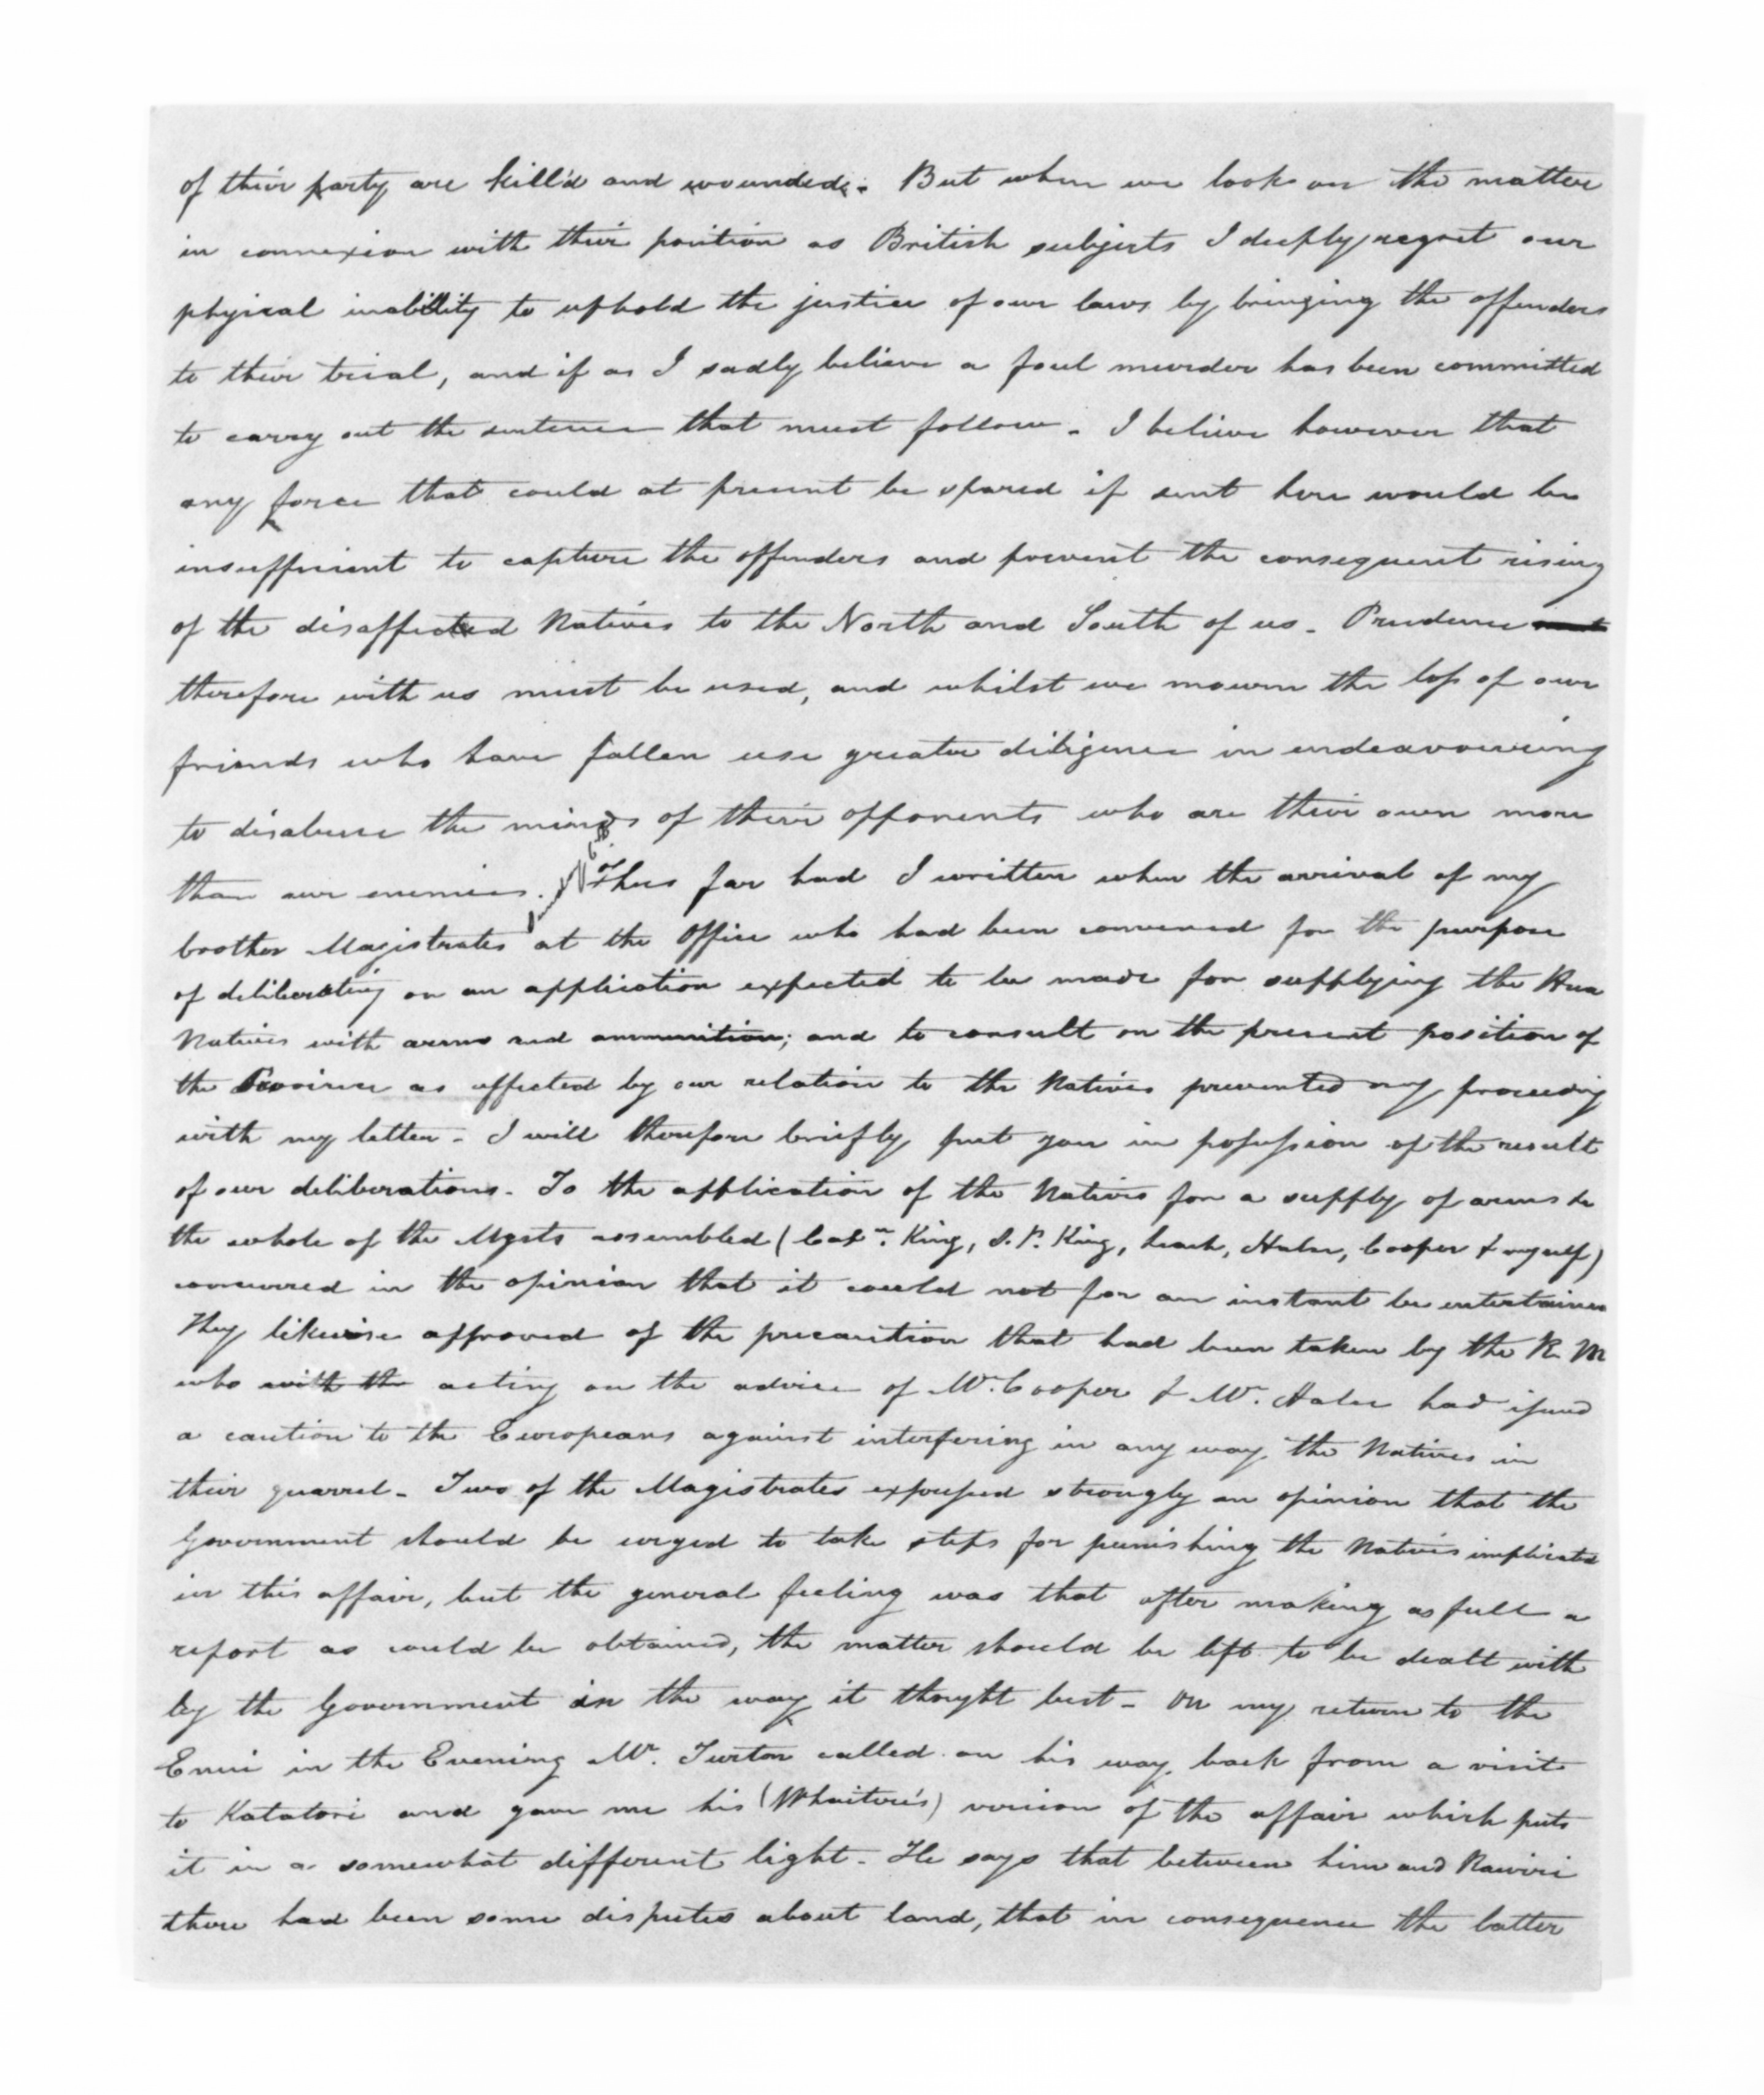 of their party are kill'd and wounded. But when we look on the matter
in connexion with their position as British subjects I deeply regret our
physical inability to uphold the justice of our laws by bringing the offenders
to their trial, and if as I sadly believe a foul murder has been committed
to carry out the sentence that must follow. I believe however that
any force that could at present be spared if sent here would be
insufficient to capture the offenders and prevent the consequent rising
of the disaffected Natives to the North and South of us. Prudence
therefore with us must be used, and whilst we mourn the loss of our
friends who have fallen use greater diligence in endeavouring
to disabuse the minds of their opponents who are their own more
than our enemies. Thus far had I written when the arrival of my
brother Magistrates at the Office who had been convened for the purpose
of deliberating on an application expected to be made for supplying the Hua
Natives with arms and ammunition; and to consult on the present position of
the Province as affected by our relation to the Natives prevented my proceeding
with my letter - I will therefore briefly put you in possession of the result
of our deliberations. To the application of the Natives for a supply of arms &c
the whole of the Mgsts assembled (Capn. King, King, Leach, Halse, Cooper & myself)
concurred in the opinion that it could not for an instant be entertained
They likewise approved of the precaution that had been taken by the R. M
who with the acting on the advice of Mr. Cooper & Mr. Halse had issued
a caution to the Europeans against interfering in any way the Natives in
their quarrel - Two of the Magistrates expressed strongly an opinion that the
Government should be urged to take steps for punishing the Natives implicated
in this affair, but the general feeling was that after making as full a
report as could be obtained, the matter should be left to be dealt with
by the Government in the way it thought best - On my return to the
Enui in the Evening Mr. Turton called on his way back from a visit
to Katatori and gave me his (Whaitere's) version of the affair which puts
it in a somewhat different light. He says that between him and Rawiri
there had been some disputes about land, that in consequence the latter